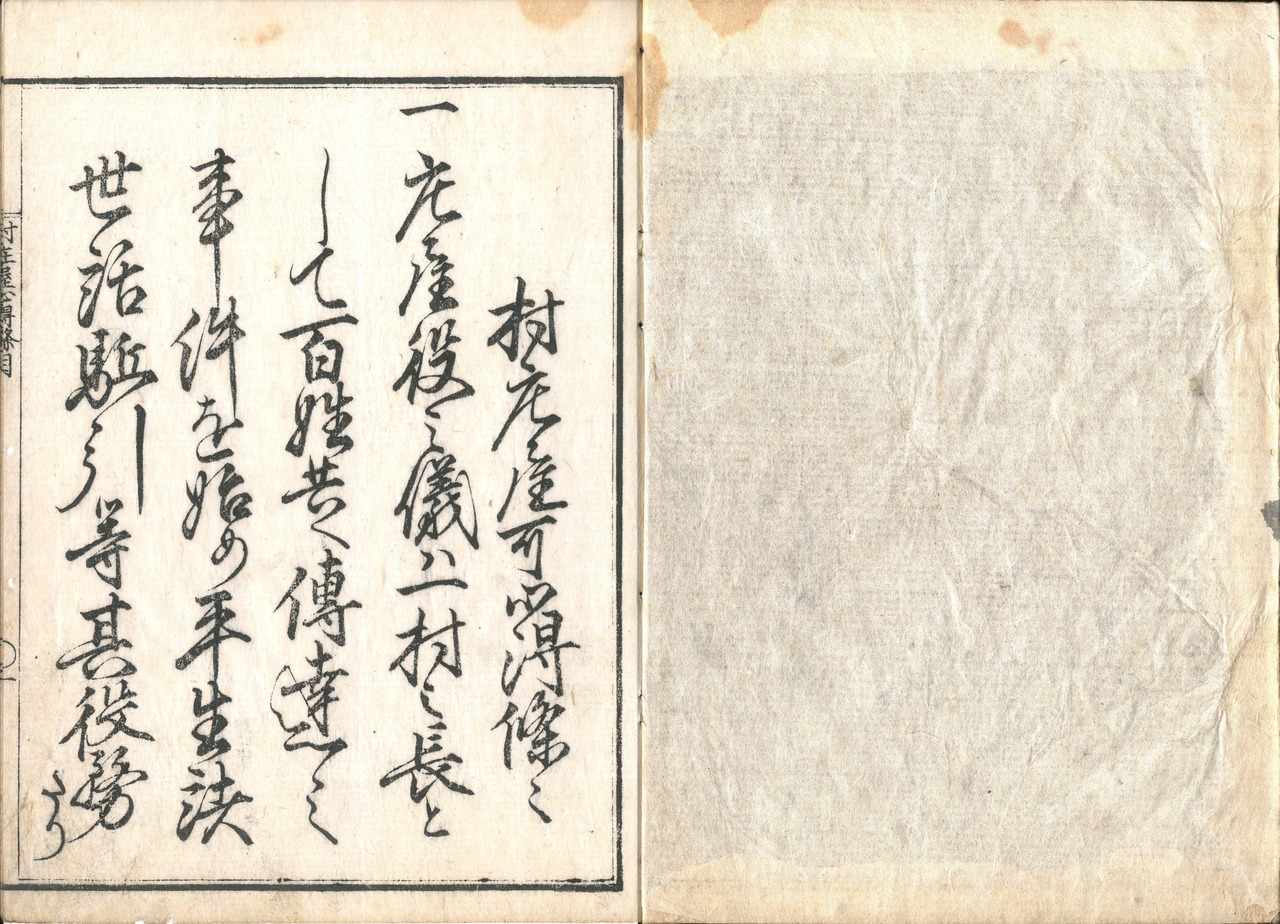 村庄屋可心得條々
一庄屋役之儀ハ一村之長と
して百姓共へ傳達之
事件を始め平生諸
世話駈引等其役務
たり
村庄屋心得條目
〇一